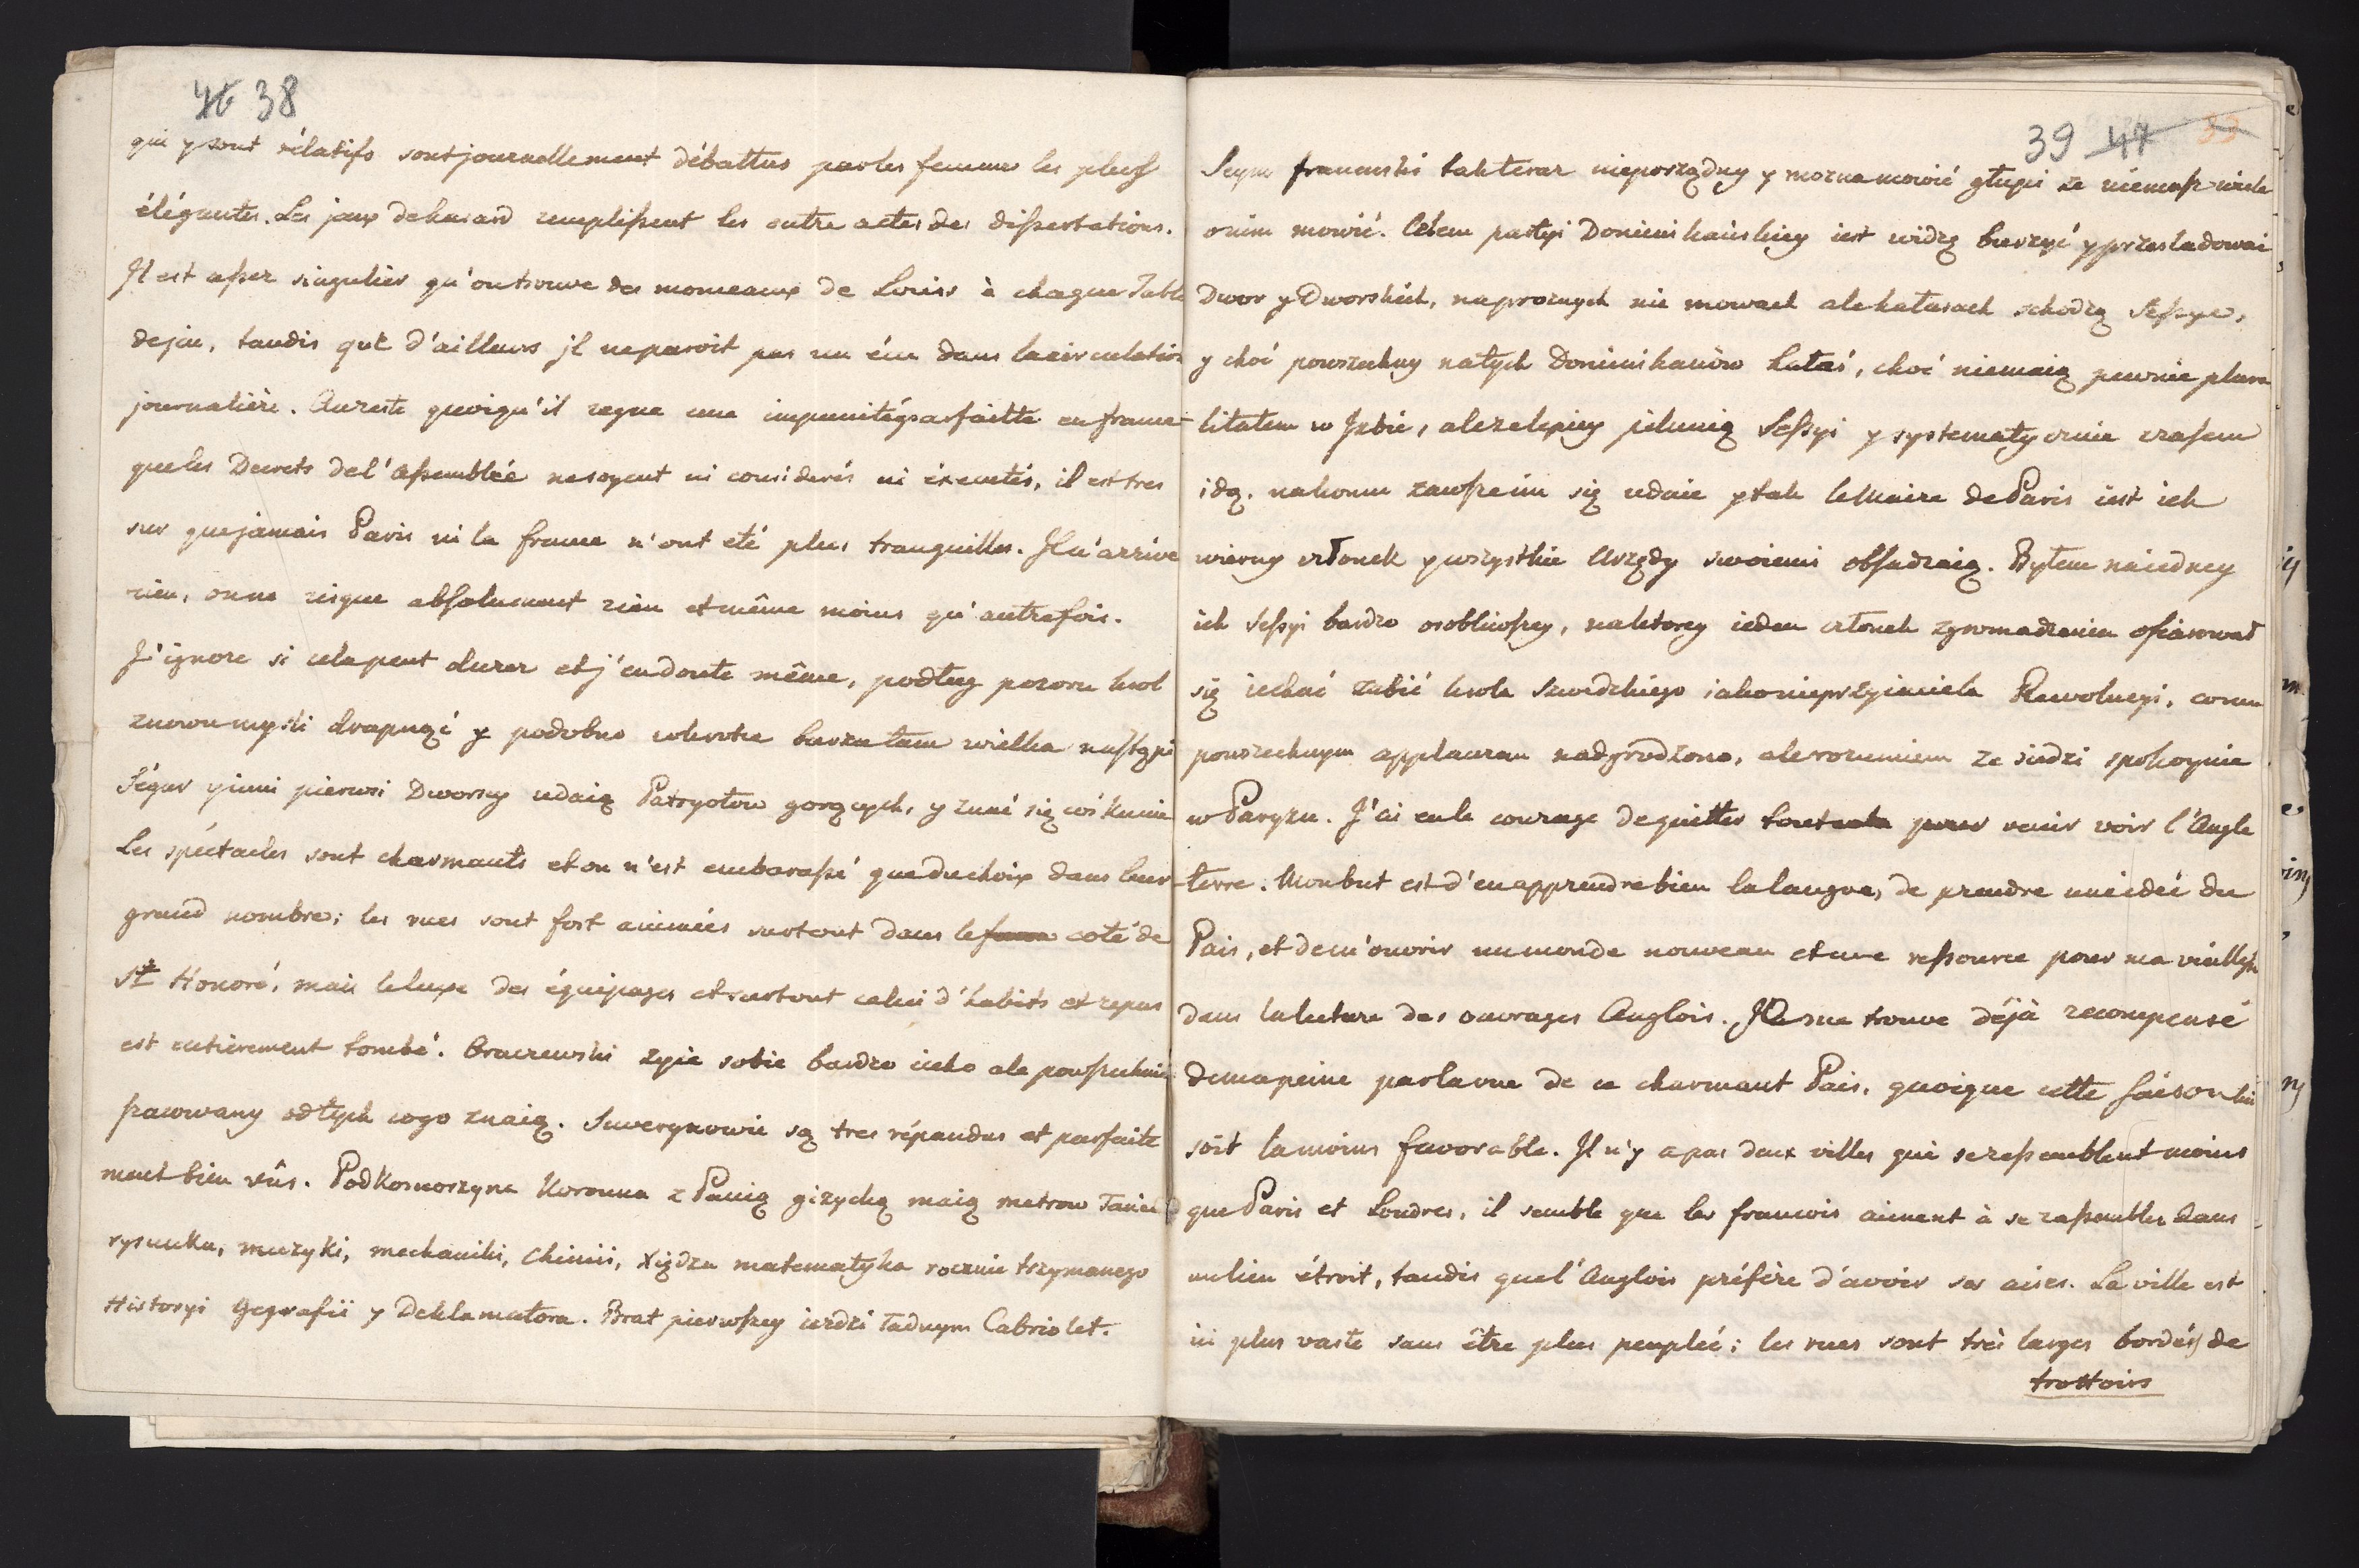 46 38
qui y sont rélatifs sont journellement débattus par les femmes les plus
élégantes. Les jeux de hasard remplissent les entre actes des dissertations.
Il est assez singulier qu'on trouve des monceaux de Louis à chaque Table
de jeu, tandis que d'ailleurs jl ne paroit pas un écu dans la circulation
journaliére. Au reste quoiqu'il regne une impunité parfaitte en france
que les Decrets de l'Assemblée ne soyent ni considerés ni éxecutés, il est tres
sur que jamais Paris ni la france n'ont eté plus tranquilles. Il n'arrive
rien, on ne risque absolument rien et même moins qu'autrefois.
J'ignore si cela peut durer et j'en doute même, podług pozoru krol
znowu mysli drapnąć y podobno wkrotce burza tam wielka nastąpi
Ségur y inni pierwsi Dworscy udaią Patryotow gorących, y znać się coś kunie
Les spéctacles sont charmants et on n'est embarassé que du choix dans leur
grand nombre; les rues sont fort animées surtout dans le coté de
St Honoré, mais le luxe des équipages et surtout celui d'habits et repas
est entiérement tombé. Oraczewski zyie sobie bardzo cicho ale powszechnie
szacowany od tych co go znaią. Suwerynowie są tres répandus et parfaite
ment bien vûs. PodKomorzyna Koronna z Panią giżycką maią metrow Tańca
rysunku, muzyki, mechaniki, Chimii, Xiędza matematyka rocznie trzymanego
Historyi Gegrafii y Deklamatora. Brat pierwszey iezdzi Ładnym Cabriolet.
39 47 33
Seym francuski tak teraz nieporządny y mozna mowić głupi ze niemasz wiele
o nim mowić. Celem partyi Dominikańskiey iest widzę burzyć y przesladować
Dwor y Dworskich, na proznych nie mowach ale hałasach schodzą Sessye,
y choć powszechny na tych Dominikanow hałas, choć niemaią pewnie plura
litatem w Izbie, ale ze lepiey pilnuią Sessyi y systematycznie czasem
idą. na koniec zawsze im się udaie y tak le Maire de Paris iest ich
wierny członek y wszystkie Urzędy swoiemi obsadzaią. Byłem na iedney
ich Sessyi bardzo osobliwszey, na ktorey ieden członek zgromadzenia ofiarował
się iechać zabić krola Szwedzkiego iako nieprzyiaciela Rewolucyi, co mu
powszechnym applauzem nadgrodzono, ale rozumiem ze siedzi spokoynie
w Paryzu. J'ai eu le courage de quitter tout cela pour venir voir l'Angle
terre. Mon but est d'en apprendre bien la langue, de prendre une idée du
Pais, et de m'ouvrir un monde nouveau et une ressource pour ma vieillesse
dans la lecture des ouvrages Anglois. Je me trouve déjà recompensé
de ma peine par la vue de ce charmant Pais, quoique cette saison lui
soit la moins favorable. Il n'y a pas deux villes qui se ressemblent moins
que Paris et Londres, il semble que les francois aiment à se rassembler dans
un lieu étroit, tandis que l'Anglois préfére d'avoir ses aises. La ville est
ici plus vaste sans être plus peuplée; les rues sont très larges bordées de
trottoirs